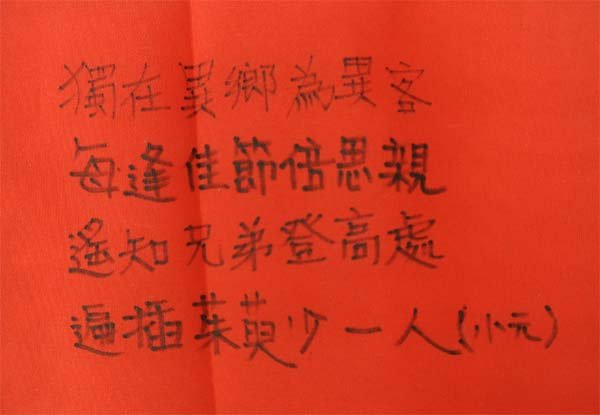 獨在異鄉為異客
每逢佳節倍思親
遙知兄弟登高處
遍插茱萸少一人(小元)